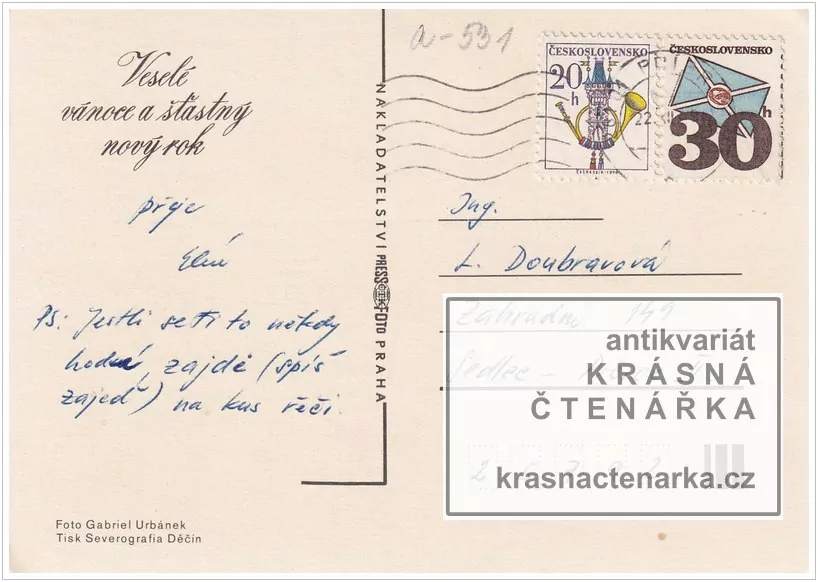 a-531
ČESKOSLOVENSKO
20 h
ČESKOSLOVENSKO
30 h
Veselé
vánoce a šťastný
nový rok
přeje
PS: Jestli se ti to někdy
zajdě (spíš
zajeď) na kus řeči.
NAKLADATELSTVÍ PRESSFOTO PRAHA
Ing.
L. Doubravová
Zahradní 149
Sedlec -
antikvariát
KRÁSNÁ
ČTENÁŘKA
krasnactenarka.cz
Foto Gabriel Urbánek
Tisk Severografia Děčín